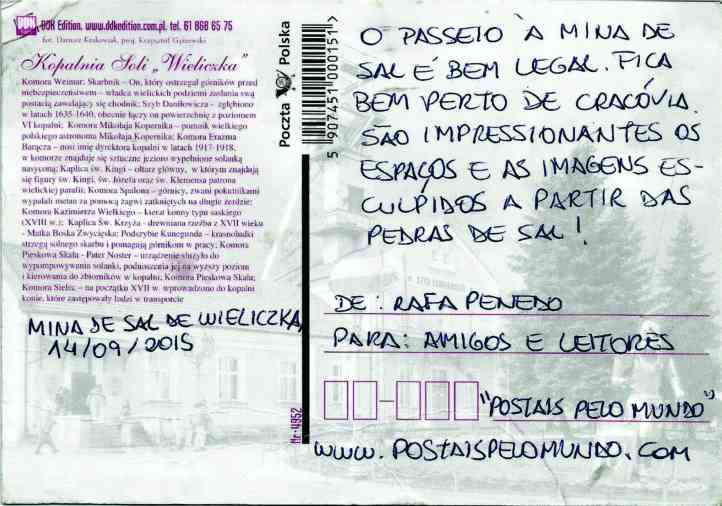 DDK Edition, www.ddkedition.com.pl, tel. 61 868 65 75
fot. Dariusz Krakowiak, proj. Krzysztof
Kopalnia Soli „Wieliczka”
Komora Weimar: Skarbnik – On, który ostrzegał górników przed
niebezpieczeństwem – władca wielickich podziemi zasłania swą
postacią zawalający się chodnik; Szyb Daniłowicza – zgłębiono
w latach 1635-1640, obecnie łączy on powierzchnię z poziomem
VI kopalni; Komora Mikołaja Kopernika – pomnik wielkiego
polskiego astronoma Mikołaja Kopernika; Komora Erazma
Barącza – nosi imię dyrektora kopalni w latach 1917-1918,
w komorze znajduje się sztuczne jezioro wypełnione solanką
nasyconą; Kaplica św. Kingi – ołtarz główny, w którym znajdują
się figury św. Kingi, św. Józefa oraz św. Klemensa patrona
wielickiej parafii; Komora Spalona – górnicy, zwani pokutnikami
wypalali metan za pomocą żagwi zatkniętych na długie żerdzie;
Komora Kazimierza Wielkiego – kierat konny typu saskiego
(XVIII w.); Kaplica Św. Krzyża – drewniana rzeźba z XVII wieku
– Matka Boska Zwycięska; Podszybie Kunegunda – krasnoludki
strzegą solnego skarbu i pomagają górnikom w pracy; Komora
Pieskowa Skała – Pater Noster – urządzenie służyło do
wypompowywania solanki, podnoszenia jej na wyższy poziom
i kierowania do zbiorników w kopalni; Komora Pieskowa Skała;
Komora Sielec – na początku XVII w. wprowadzono do kopalni
konie, które zastępowały ludzi w transporcie
MINA DE SAL DE WIELICZKA,
14/09/2015
Poczta Polska
5 907451 000151 >
Nr-4952
O PASSEIO À MINA DE
SAL É BEM LEGAL. FICA
BEM PERTO DE CRACÓVIA.
SÃO IMPRESSIONANTES OS
ESPAÇOS E AS IMAGENS ES-
CULPIDOS A PARTIR DAS
PEDRAS DE SAL!
DE: RAFA PENEDO
PARA: AMIGOS E LEITORES
"POSTAIS PELO MUNDO"
WWW.POSTAISPELOMUNDO.COM